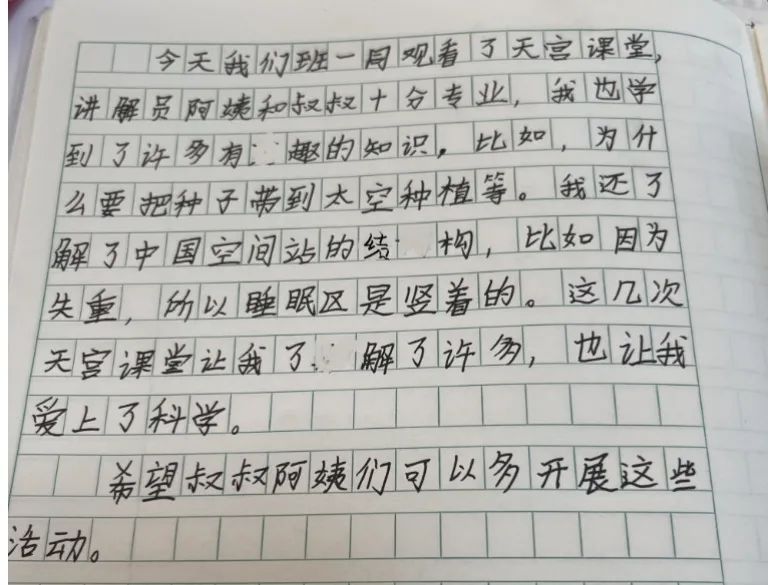 今天我们班一同观看了天宫课堂,
讲解员阿姨和叔叔十分专业,我也学
到了许多有趣的知识,比如,为什
么要把种子带到太空种植等。我还了
解了中国空间站的结构,比如因为
失重,所以睡眠区是竖着的。这几次
天宫课堂让我了解了许多,也让我
爱上了科学。
希望叔叔阿姨们可以多开展这些
活动。